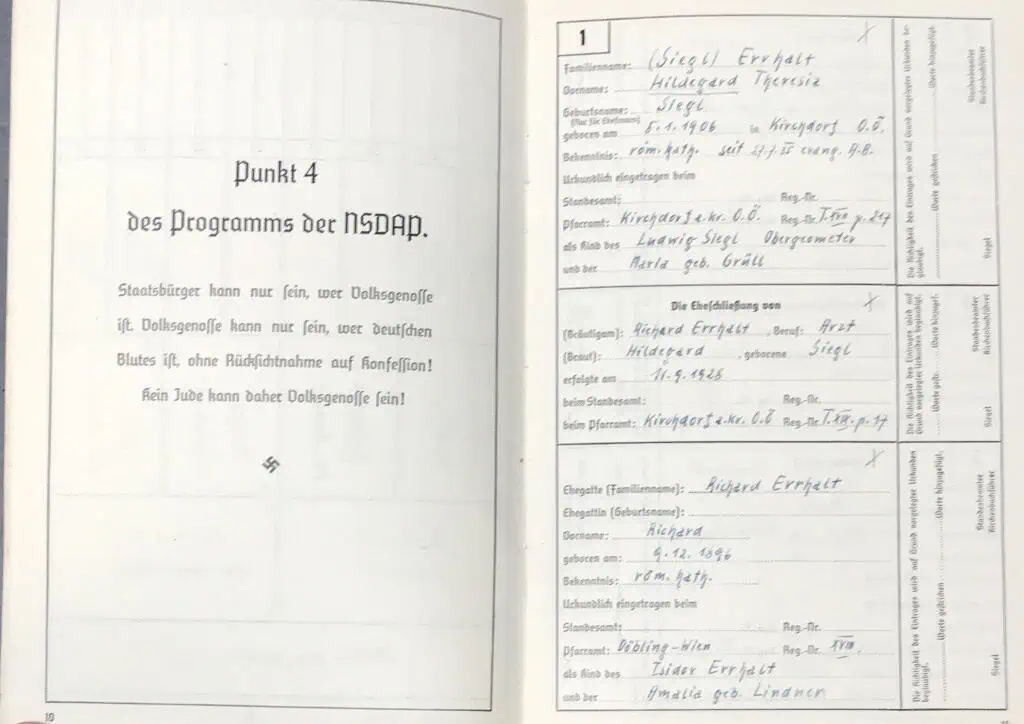 Punkt 4
des Programms der NSDAP.
Staatsbürger kann nur sein, wer Volksgenosse
ist. Volksgenosse kann nur sein, wer deutschen
Blutes ist, ohne Rücksichtnahme auf Konfession!
Kein Jude kann daher Volksgenosse sein!
10
1
Familienname: (Siegl) Errhalt
Vorname: Hildegard Theresia
Geburtsname: Siegl
(Nur für Ehefrauen)
geboren am 5.1.1906 in Kirchdorf O.Ö.
Bekenntnis: röm. kath. seit evang. A.B.
Urkundlich eingetragen beim
Standesamt: Reg.-Nr.
Pfarramt: Kirchdorf a. Kr. O.Ö. Reg.-Nr. T. XVII p. 217
als Kind des Ludwig Siegl Obergeometer
und der Maria geb. Grüll
Die Richtigkeit des Eintrages wird auf Grund vorgelegter Urkunden be-
glaubigt. Worte gestrichen Worte hinzugefügt.
Siegel Standesbeamter
Kirchenbuchführer
Die Eheschließung von
(Bräutigam): Richard Errhalt, Beruf: Arzt
(Braut): Hildegard, geborene Siegl
erfolgte am 11.9.1928
beim Standesamt: Reg.-Nr.
beim Pfarramt: Kirchdorf a. Kr. O.Ö Reg.-Nr. p. 17
Die Richtigkeit des Eintrages wird auf
Grund vorgelegter Urkunden beglaubigt.
Worte gestr. Worte hinzugef.
Siegel Standesbeamter
Kirchenbuchführer
Ehegatte (Familienname): Richard Errhalt
Ehegattin (Geburtsname):
Vorname: Richard
geboren am: 9.12.1896
Bekenntnis: röm. kath.
Urkundlich eingetragen beim
Standesamt: Reg.-Nr.
Pfarramt: Döbling-Wien Reg.-Nr. XVII
als Kind des Isidor Errhalt
und der Amalia geb. Lindner
Die Richtigkeit des Eintrages wird auf Grund vorgelegter Urkunden
beglaubigt. Worte gestrichen Worte hinzugefügt.
Siegel Standesbeamter
Kirchenbuchführer